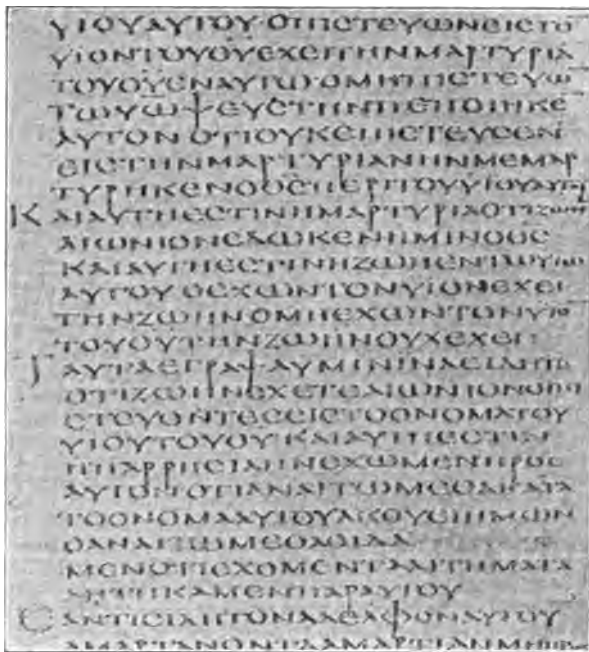 ΥΙΟΥΑΥΤΟΥ·ΟΠΙϹΤΕΥΩΝΕΙϹΤΟ̅
ΥΙΟΝΤΟΥΘ̅Υ̅ΕΧΕΙΤΗΝΜΑΡΤΥΡΙΑ̅
ΤΟΥΘ̅Υ̅ΕΝΑΥΤΩ·ΟΜΗΠΙϹΤΕΥΩ̅
ΤΩΥΩΨΕΥϹΤΗΝΠΕΠΟΙΗΚΕ
ΑΥΤΟΝΟΤΙΟΥΚΕΠΙϹΤΕΥϹΕΝ
ΕΙϹΤΗΝΜΑΡΤΥΡΙΑΝΗΝΜΕΜΑΡ
ΤΥΡΗΚΕΝΟΘ̅Ϲ̅ΠΕΡΙΤΟΥΥΙΟΥΑΥΤΟΥ
ΚΑΙΑΥΤΗΕϹΤΙΝΗΜΑΡΤΥΡΙΑΟΤΙΖΩΗΝ
ΑΙΩΝΙΟΝΕΔΩΚΕΝΗΜΙΝΟΘ̅Ϲ̅
ΚΑΙΑΥΤΗΕϹΤΙΝΗΖΩΗΕΝΤΩΥΙΩ
ΑΥΤΟΥΟΕΧΩΝΤΟΝΥΙΟΝΕΧΕΙ
ΤΗΝΖΩΗΝΟΜΗΕΧΩΝΤΟΝΥΙΟ̅
ΤΟΥΘ̅Υ̅ΤΗΝΖΩΗΝΟΥΧΕΧΕΙ
ΤΑΥΤΑΕΓΡΑΨΑΥΜΙΝΙΝΑΕΙΔΗΤΕ
ΟΤΙΖΩΗΝΕΧΕΤΕΑΙΩΝΙΟΝΟΙΠΙ
ϹΤΕΥΟΝΤΕϹΕΙϹΤΟΟΝΟΜΑΤΟΥ
ΥΙΟΥΤΟΥΘ̅Υ̅·ΚΑΙΑΥΤΗΕϹΤΙΝ
ΗΠΑΡΡΗϹΙΑΗΝΕΧΩΜΕΝΠΡΟϹ
ΑΥΤΟΝΟΤΙΑΝΑΙΤΩΜΕΘΑΚΑΤΑ
ΤΟΟΝΟΜΑΑΥΤΟΥΑΚΟΥΕΙΗΜΩΝ
ΟΑΝΑΙΤΩΜΕΘΑΟΙΔΑ
ΜΕΝΟΤΙΕΧΟΜΕΝΤΑΑΙΤΗΜΑΤΑΑ
ΗΤΗΚΑΜΕΝΠΑΡΑΥΤΟΥ
ΕΑΝΤΙϹΙΔΗΤΟΝΑΔΕΛΦΟΝΑΥΤΟΥ
ΑΜΑΡΤΑΝΟΝΤΑΑΜΑΡΤΙΑΝΜΗ